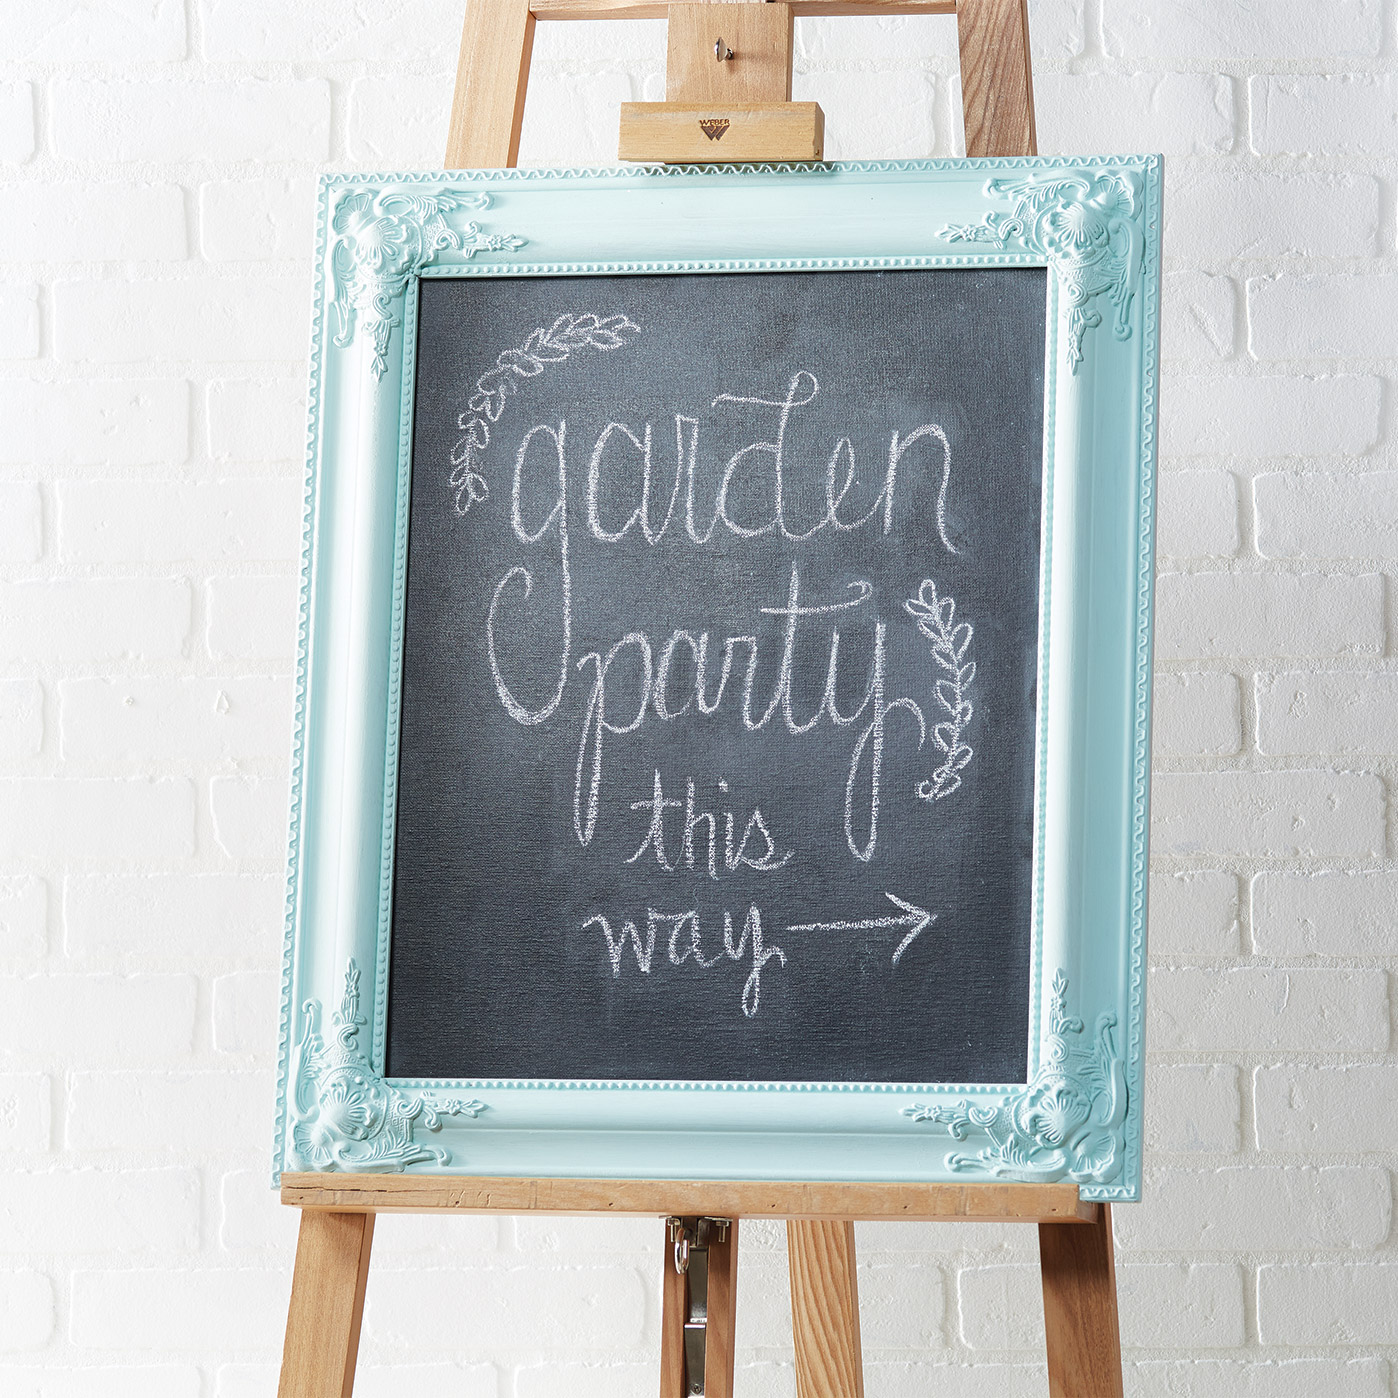 WEBER
garden
party
this
way →